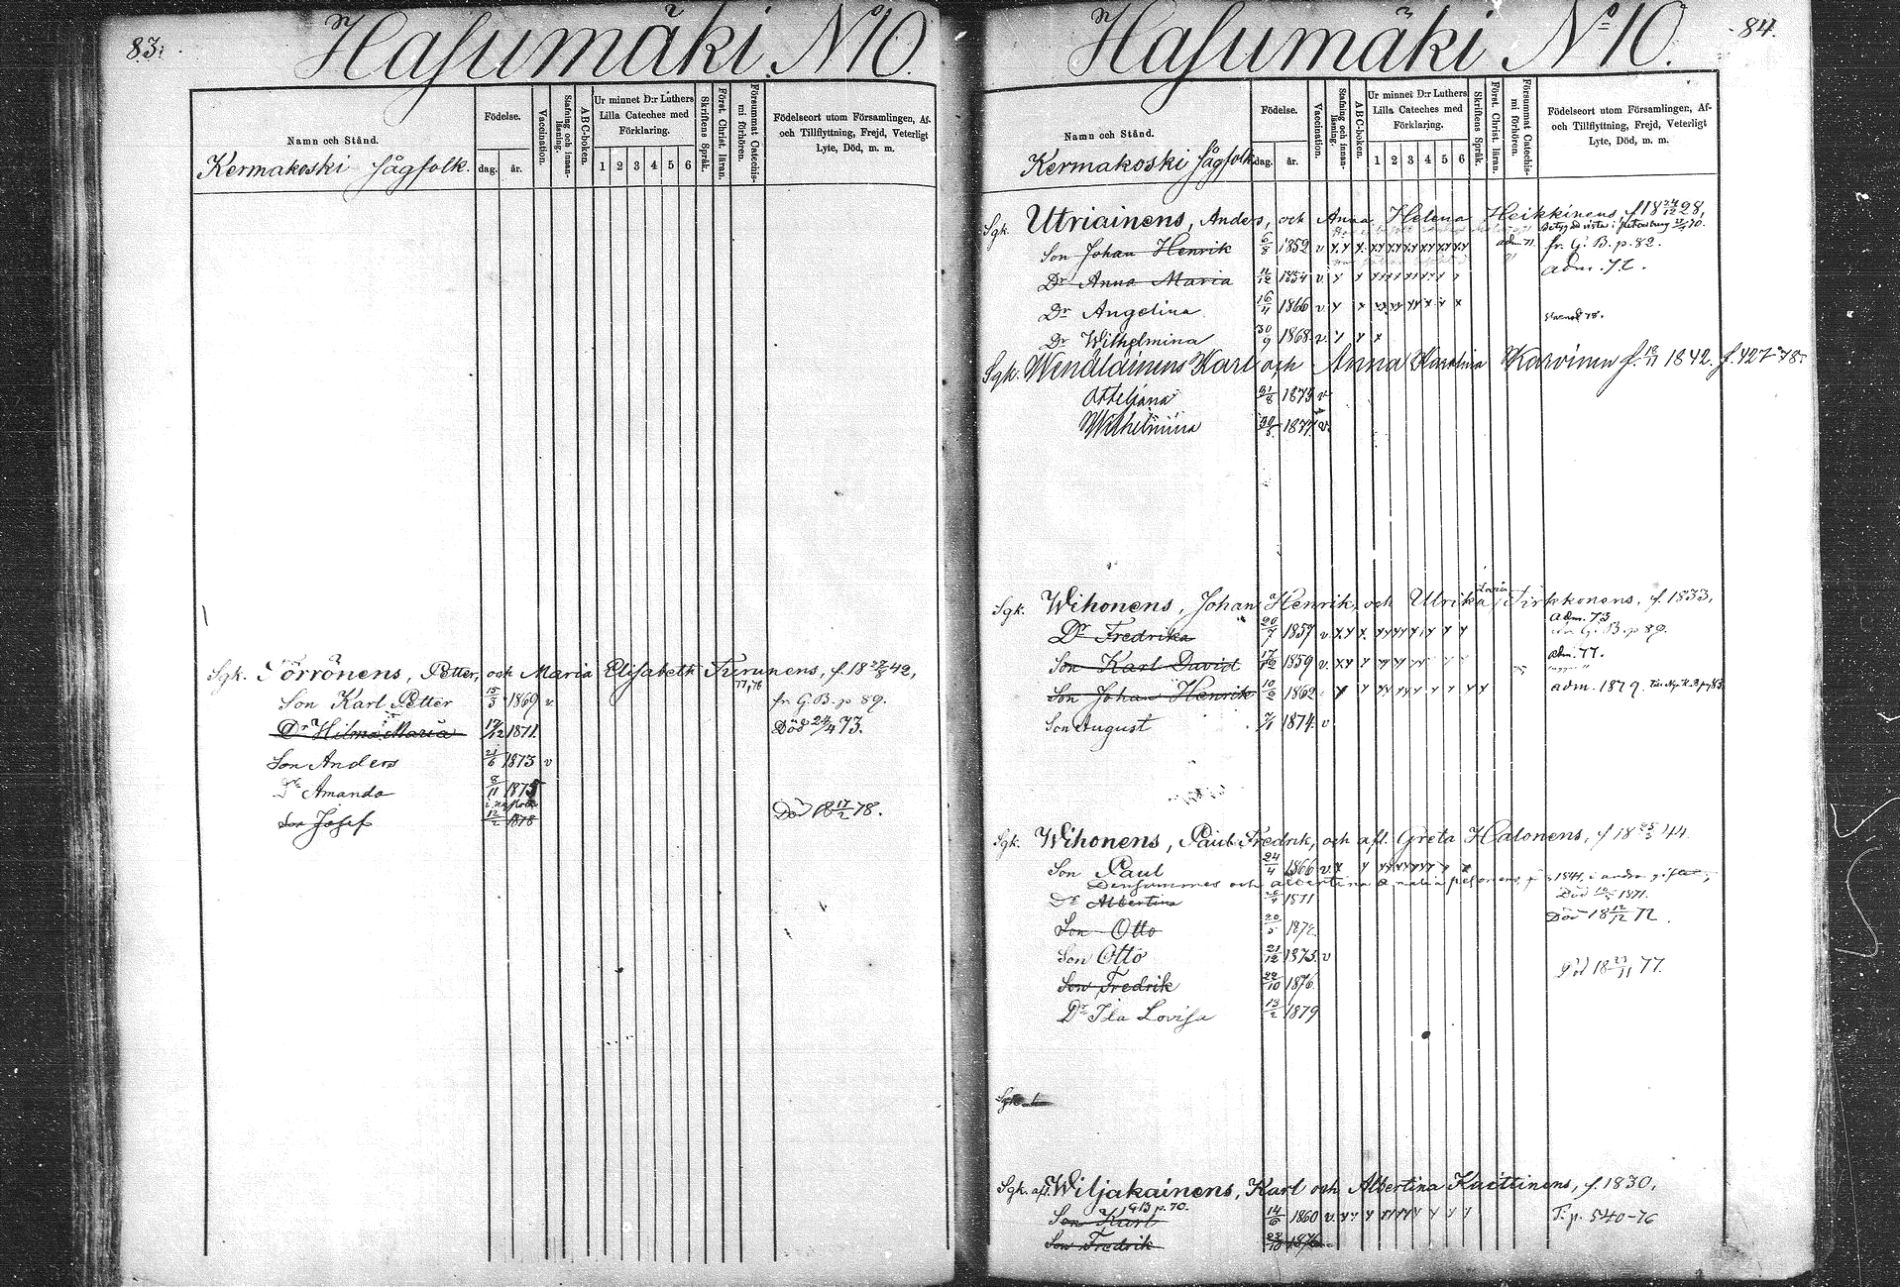 83.
Hasumäki N10.
Namn och Stånd.
Kermakoski sågfolk.
Födelse.
dag. år.
Vaccination.
Stafning och innan-läsning.
ABC-boken.
Ur minnet D:r Luthers
Lilla Cateches med
Förklaring.
1 2 3 4 5 6
Skriftens Språk.
Först. Christ. läran.
Försummat Catechis-
mi förhören.
Födelseort utom Församlingen, Af-
och Tillflyttning, Frejd, Veterligt
Lyte, Död, m. m.
Sgk. Törrönens, Petter, och Maria Elisabeth Turunens, f. 18 42,
77, 78
Son Karl Petter 15/3 1869 v fr G. B. p 89.
Dr Hilma Maria 1871. Död 73.
Son Anders 21/6 1873 v
Dr Amanda 8/11 1875
Son Josef 12/2 1878 Död 18 17/2 78.
84.
Hasumäki No 10.
Namn och Stånd.
Kermakoski sågfolk
Födelse.
dag. år.
Vaccination.
Stafning och innan-läsning.
ABC-boken.
Ur minnet D:r Luthers
Lilla Cateches med
Förklaring.
1 2 3 4 5 6
Skriftens Språk.
Först. Christ. läran.
Försummat Catechis-
mi förhören.
Födelseort utom Församlingen, Af-
och Tillflyttning, Frejd, Veterligt
Lyte, Död, m. m.
Sgk. Utriainens, Anders, och Anna Helena Heikkinens, f 18 24/12 28,
Son Johan Henrik 6/8 1852 v fr. G. B. p. 82.
Dr Anna Maria 11/12 1854 v adm. 72.
Dr Angelina 16/11 1866 v
Dr Wilhelmina 30/9 1868 v.
Sgk. Wenäläinens Karl och Anna Karolina Karvinen f. 1842. f. 427-78
Otteljana 31/8 1873 v
Wilhelmina 1877. v.
Sgk. Wihonens, Johan Henrik, och Ulrika Lovisa Tirkkonens, f. 1833,
adm. 73
Dr Fredrika 20/7 1857 v fr. G. B. p 89.
Son Karl David 17/12 1859 v. adm. 77.
Son Johan Henrik 1862 adm. 1879.
Son August 7/1 1874 v
Sgk. Wihonens, Paul Fredrik, och afl. Greta Halonens, f 18 44.
Son Paul 24/4 1866 v.
Densammes och Albertina Amalia 1841, i andra giftet,
Dr Albertina 1871 Död 1871.
Son Otto 20/5 1872 Död 18 12/12 72.
Son Otto 21/12 1873. v
Son Fredrik 22/10 1876 Död 18 23/11 77.
Dr Ida Lovisa 13/2 1879
Sgk.
Sgk. afl. Wiljakainens, Karl och Albertina Kuittinens, f. 1830,
GB p. 70.
Son Karl 14/6 1860 v. T. p. 540-76
Son Fredrik 1876